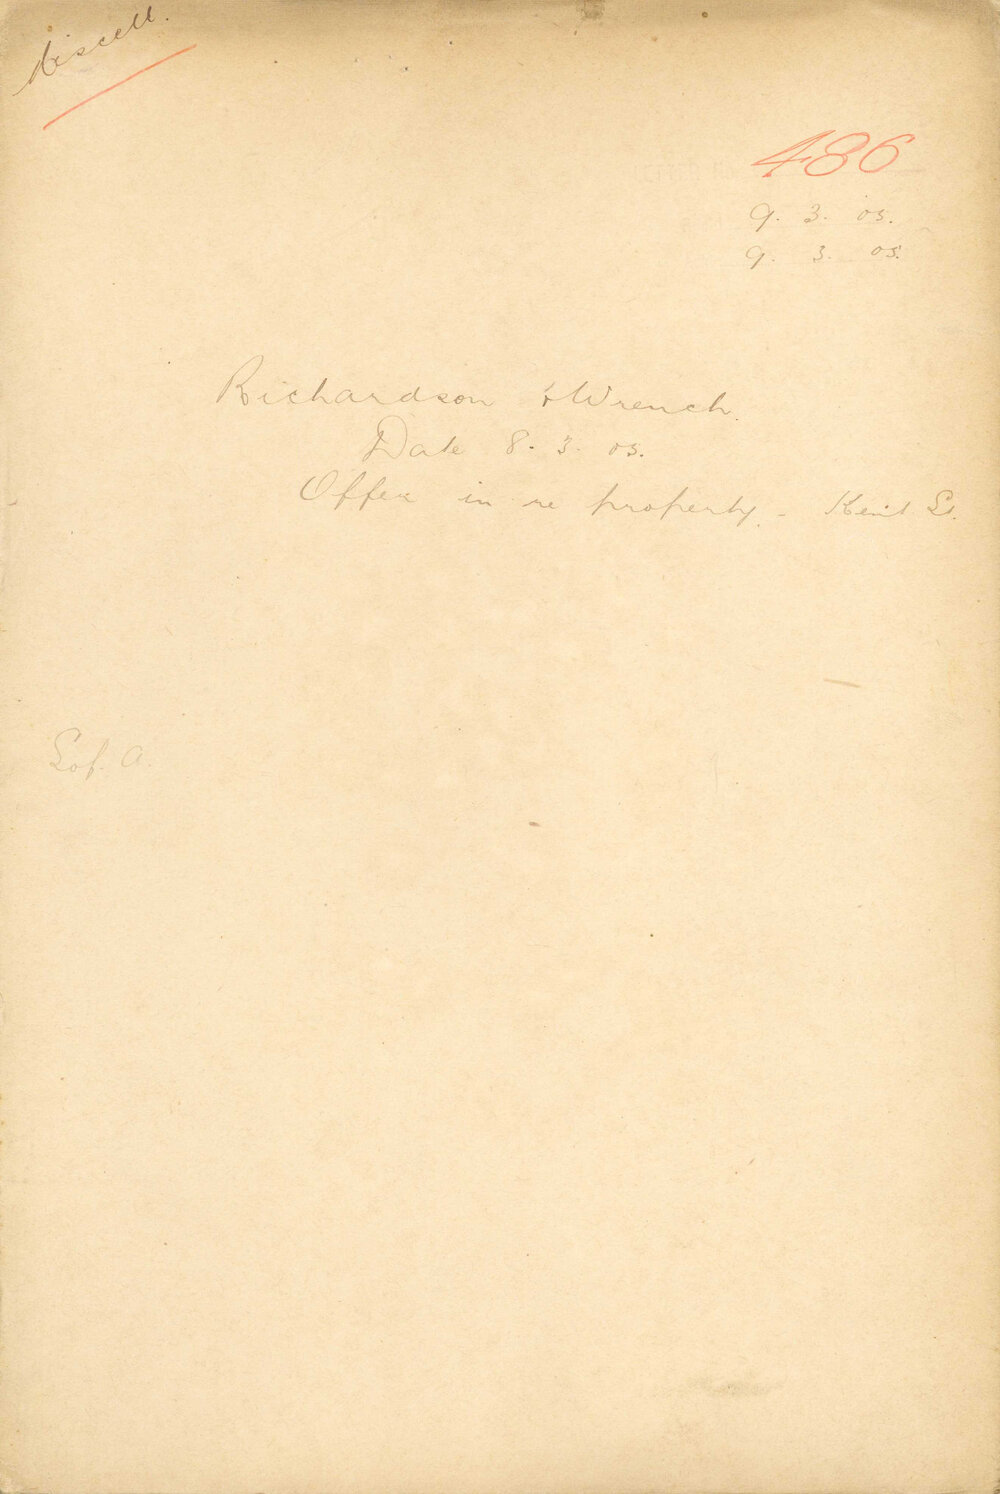 Miscell.
486
9. 3. 05.
9. 3. 05.
Richardson & Wrench.
Date 8. 3. 05.
Offer in re property - Kent St.